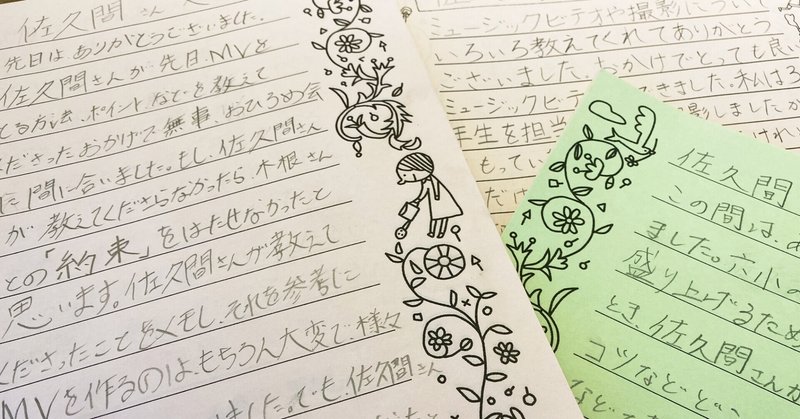 佐久間さん
先日は、ありがとうございました。
佐久間さんが先日、MVを
てる方法、ポイントなどを教えて
ださったおかげで無事、おひろめ会
に間に合いました。もし、佐久間さん
が教えてくださらなかったら、木根さん
との「約束」をはたせなかったと
思います。佐久間さんが教えて
くださったことをメモし、それを参考に
MVを作るのは、もちろん大変で、様々
ました。でも、佐久間さん
ミュージックビデオや撮影について
いろいろ教えてくれてありがとう
ございました。おかげでとっても良い
ミュージックビデオができました。私は
影しましたが
年生を担当
もってい
だけ
佐久間
この間は、
ました。六小の
盛り上げるため
とき、佐久間さんが
コツなどど
など